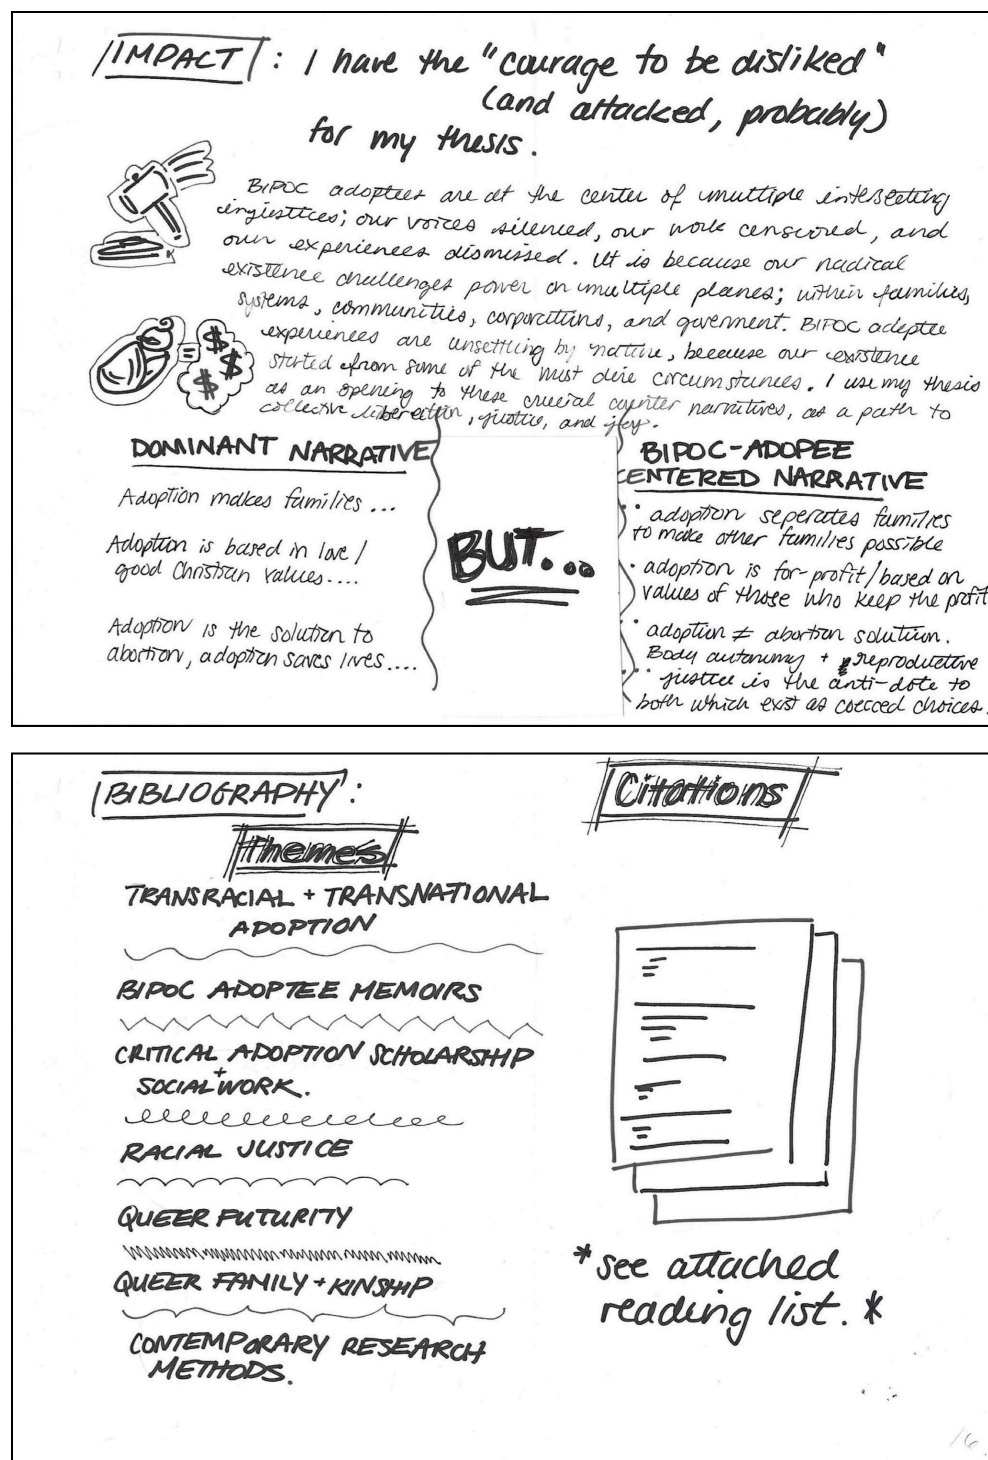 IMPACT : I have the "courage to be disliked"
(and attacked, probably)
for my thesis.
BIPOC adoptees are at the center of multiple intersecting
injustices; our voices silenced, our work censored, and
our experiences dismissed. It is because our radical
existence challenges power on multiple planes; within families,
systems, communities, corporations, and goverment. BIPOC adoptee
experiences are unsettling by nature, because our existence
started from some of the most dire circumstances. I use my thesis
as an opening to these crucial counter narratives, as a path to
collective liberation, justice, and joy.
= $ $ $
DOMINANT NARRATIVE
Adoption makes families ...
Adoption is based in love /
good Christian values....
Adoption is the solution to
abortion, adoption saves lives....
BUT...
BIPOC-ADOPEE
CENTERED NARRATIVE
• adoption seperates families
to make other families possible
• adoption is for-profit/based on
values of those who keep the profit
• adoption ≠ abortion solution.
Body autonomy + reproductive
justice is the anti-dote to
both which exist as coerced choices.
BIBLIOGRAPHY:
Themes
TRANSRACIAL + TRANSNATIONAL
ADOPTION
BIPOC ADOPTEE MEMOIRS
CRITICAL ADOPTION SCHOLARSHIP
+
SOCIAL WORK.
RACIAL JUSTICE
QUEER FUTURITY
QUEER FAMILY + KINSHIP
CONTEMPORARY RESEARCH
METHODS.
Citations
*see attached
reading list.*
16